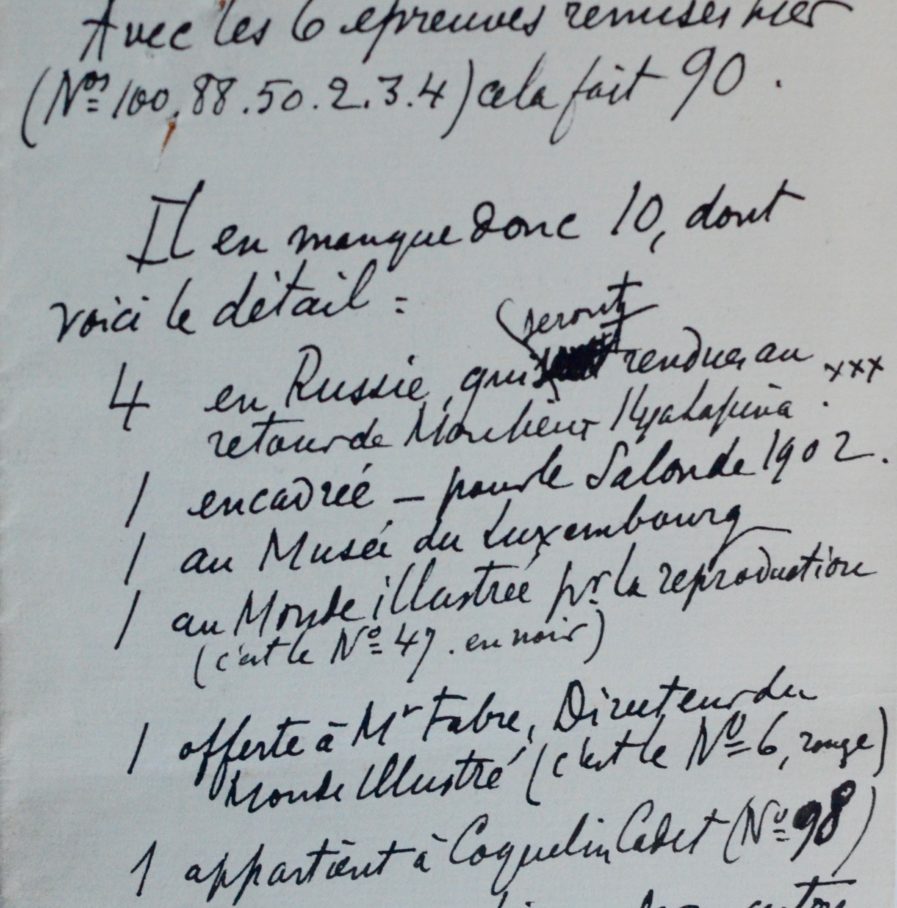 Avec les 6 épreuves remises hier
(Nos 100.88.50.2.3.4) cela fait 90.
Il en manque donc 10, dont
voici le détail :
seront
4 en Russie, qui rendues au xxx
retour de Monsieur
1 encadrée – pour le Salon de 1902.
1 au Musée du Luxembourg
1 au Monde illustrée pr. la reproduction
(c'est le No 47. en noir)
1 offerte à Mr Fabre, Directeur du
Monde Illustré (c'est le No 6, rouge)
1 appartient à Coquelin Cadet (No 98)